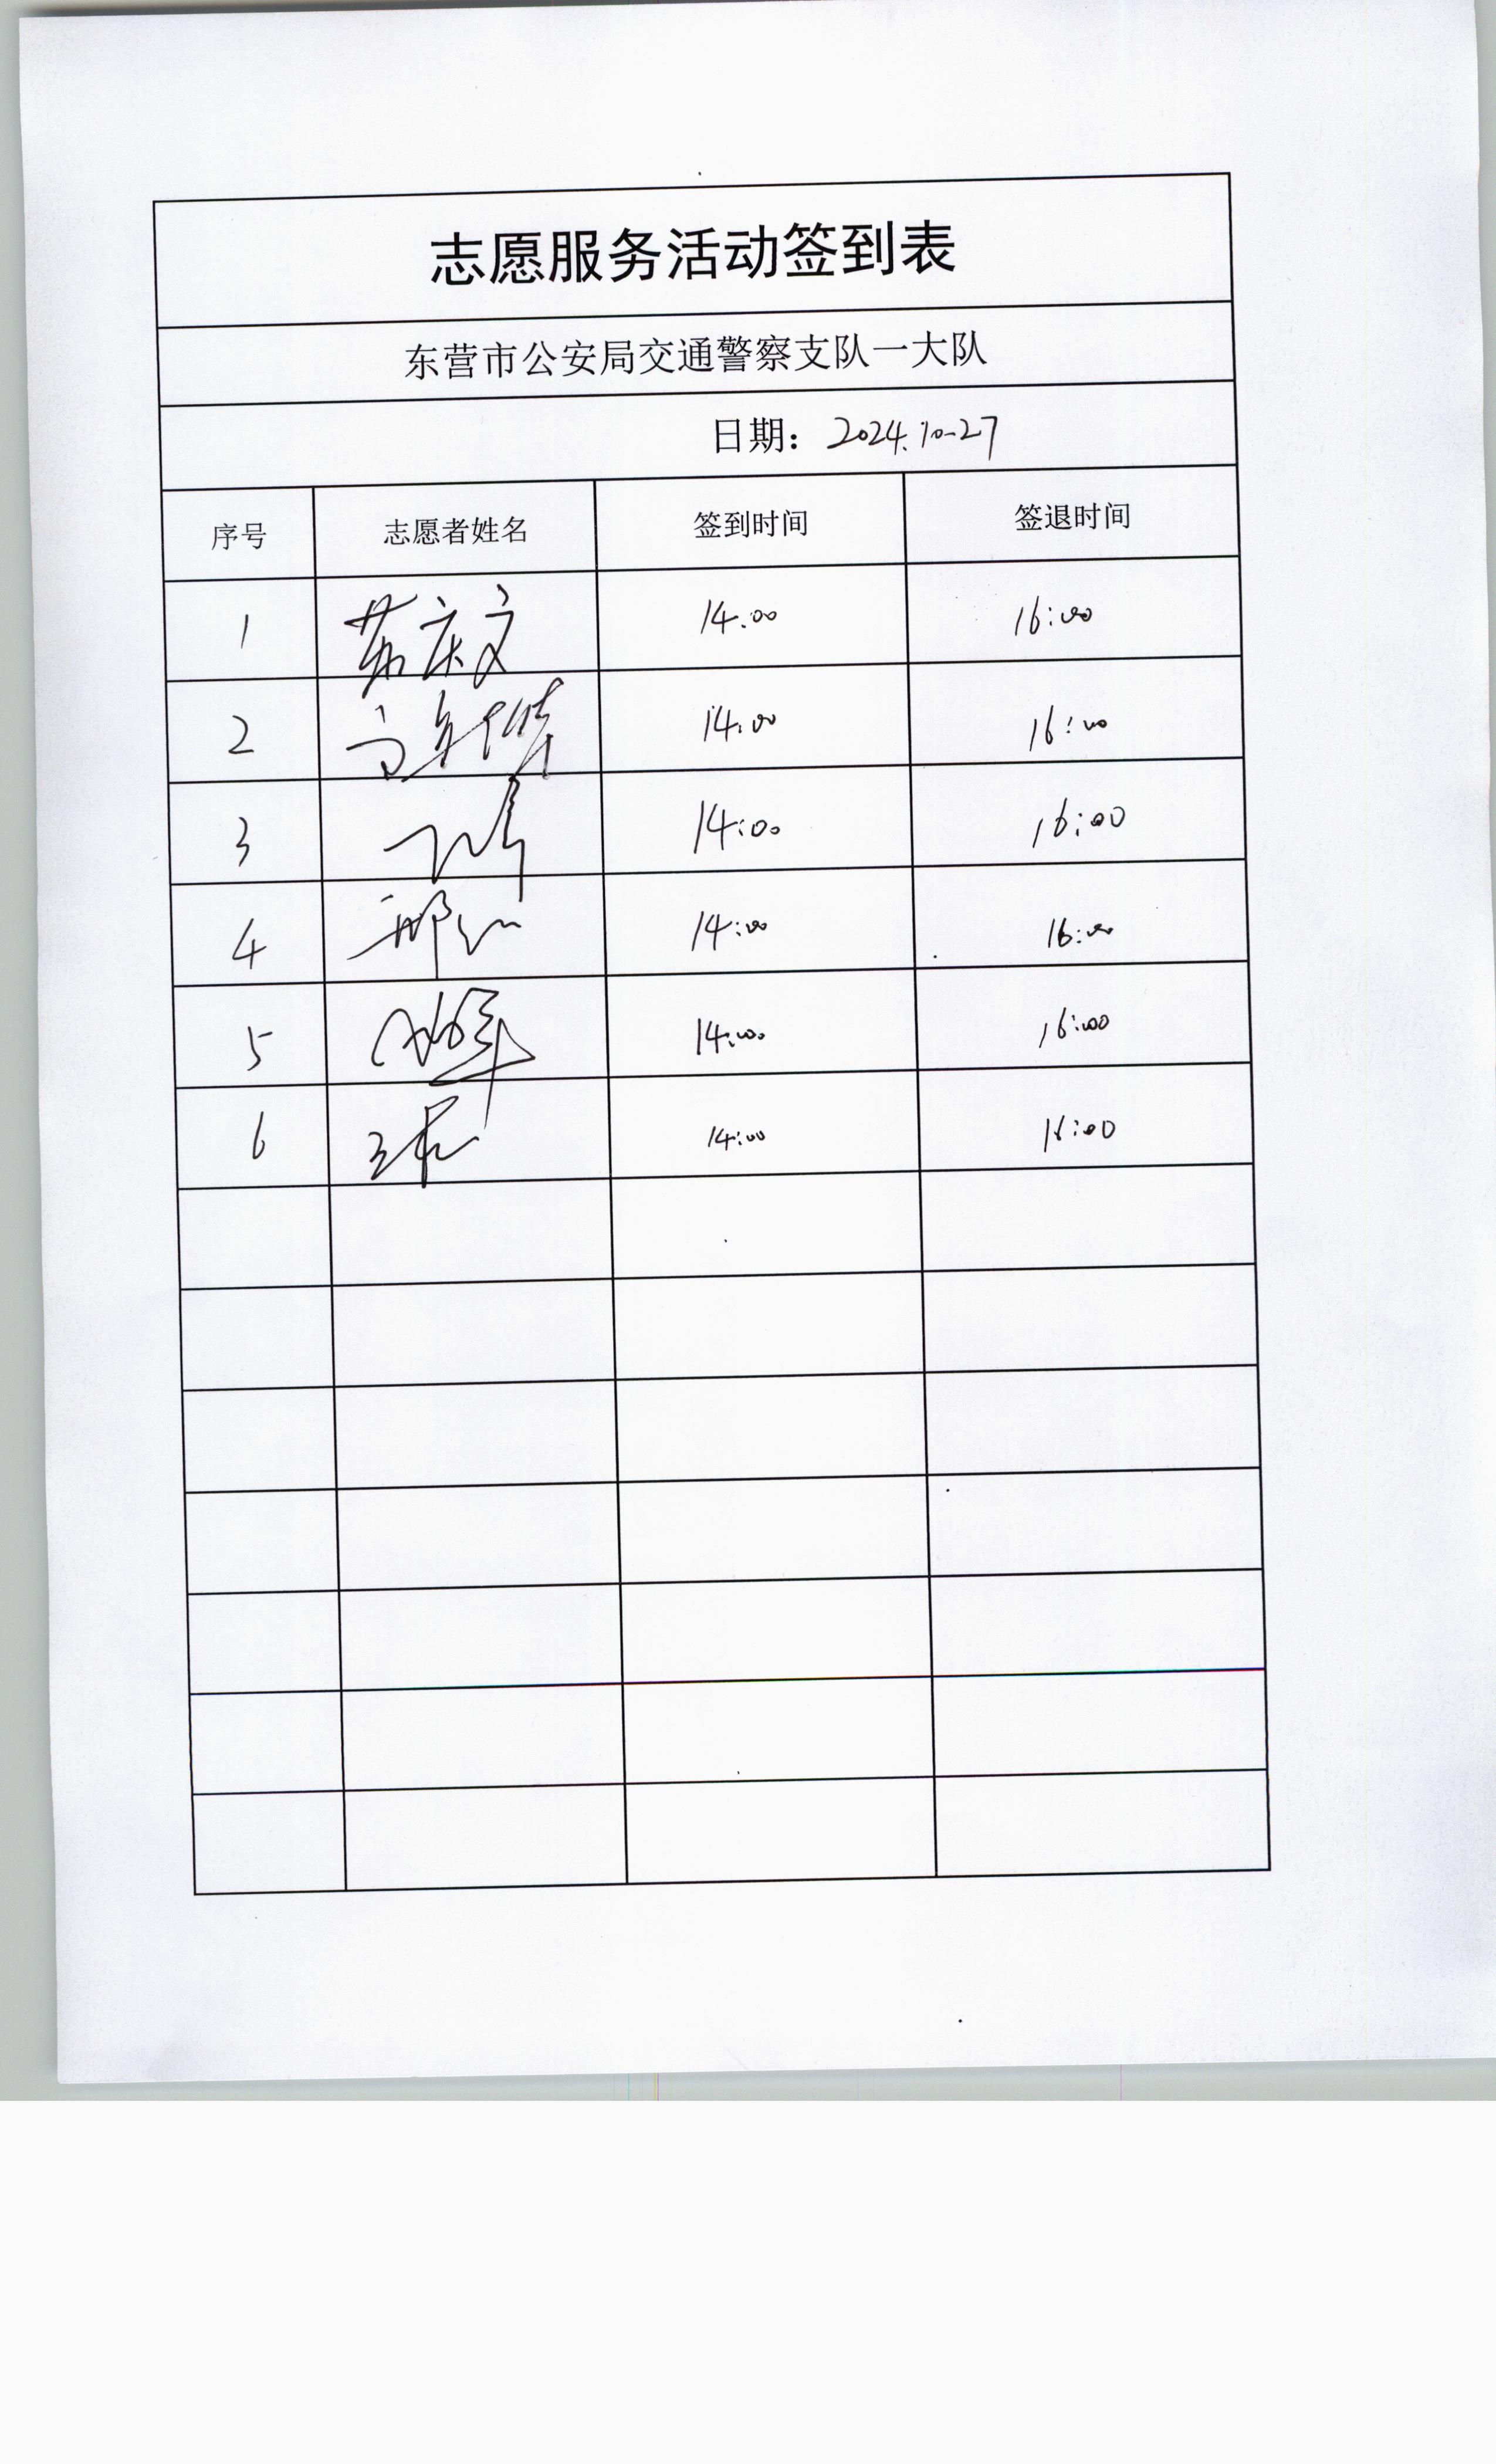 志愿服务活动签到表
东营市公安局交通警察支队一大队
日期：2024.10-27
序号 志愿者姓名 签到时间 签退时间
1 苏庆文 14:00 16:00
2 14:00 16:00
3 14:00 16:00
4 14:00 16:00
5 14:00 16:00
6 14:00 16:00